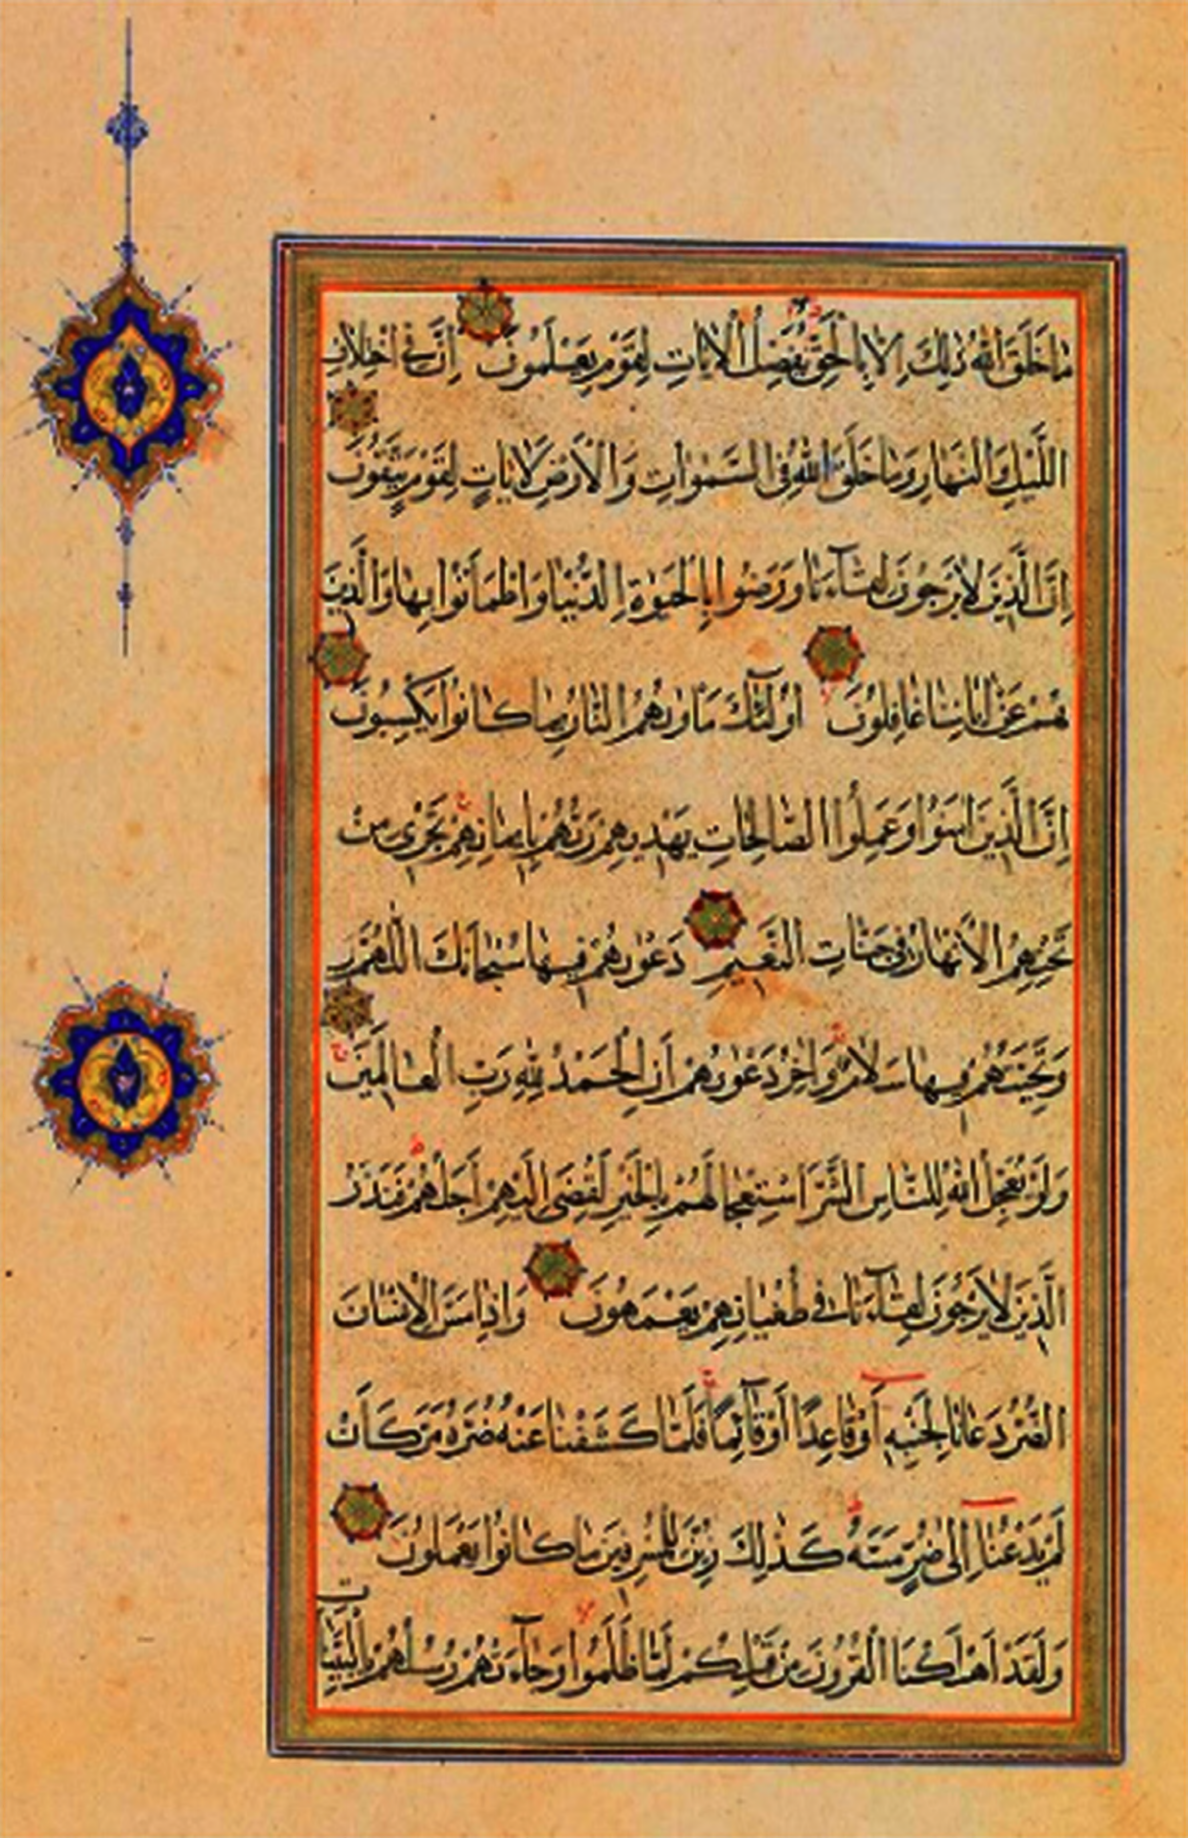 مَا خَلَقَ اللهُ ذٰلِكَ اِلَّا بِالْحَقِّ يُفَصِّلُ الْاٰيَاتِ لِقَوْمٍ يَعْلَمُونَ اِنَّ فِي اخْتِلَافِ
اللَّيْلِ وَالنَّهَارِ وَمَا خَلَقَ اللهُ فِي السَّمٰوَاتِ وَالْاَرْضِ لَاٰيَاتٍ لِقَوْمٍ يَتَّقُونَ
اِنَّ الَّذِينَ لَا يَرْجُونَ لِقَآءَنَا وَرَضُوا بِالْحَيٰوةِ الدُّنْيَا وَاطْمَاَنُّوا بِهَا وَالَّذِينَ
هُمْ عَنْ اٰيَاتِنَا غَافِلُونَ اُولٰٓئِكَ مَاْوٰىهُمُ النَّارُ بِمَا كَانُوا يَكْسِبُونَ
اِنَّ الَّذِينَ اٰمَنُوا وَعَمِلُوا الصَّالِحَاتِ يَهْدِيهِمْ رَبُّهُمْ بِاِيمَانِهِمْ تَجْرِي مِنْ
تَحْتِهِمُ الْاَنْهَارُ فِي جَنَّاتِ النَّعِيمِ دَعْوٰىهُمْ فِيهَا سُبْحَانَكَ اللّٰهُمَّ
وَتَحِيَّتُهُمْ فِيهَا سَلَامٌ وَاٰخِرُ دَعْوٰىهُمْ اَنِ الْحَمْدُ لِلّٰهِ رَبِّ الْعَالَمِينَ
وَلَوْ يُعَجِّلُ اللهُ لِلنَّاسِ الشَّرَّ اسْتِعْجَالَهُمْ بِالْخَيْرِ لَقُضِيَ اِلَيْهِمْ اَجَلُهُمْ فَنَذَرُ
الَّذِينَ لَا يَرْجُونَ لِقَآءَنَا فِي طُغْيَانِهِمْ يَعْمَهُونَ وَاِذَا مَسَّ الْاِنْسَانَ
الضُّرُّ دَعَانَا لِجَنْبِهِ اَوْ قَاعِدًا اَوْ قَآئِمًا فَلَمَّا كَشَفْنَا عَنْهُ ضُرَّهُ مَرَّ كَاَنْ
لَمْ يَدْعُنَآ اِلٰى ضُرٍّ مَسَّهُ كَذٰلِكَ زُيِّنَ لِلْمُسْرِفِينَ مَا كَانُوا يَعْمَلُونَ
وَلَقَدْ اَهْلَكْنَا الْقُرُونَ مِنْ قَبْلِكُمْ لَمَّا ظَلَمُوا وَجَآءَتْهُمْ رُسُلُهُمْ بِالْبَيِّنَاتِ